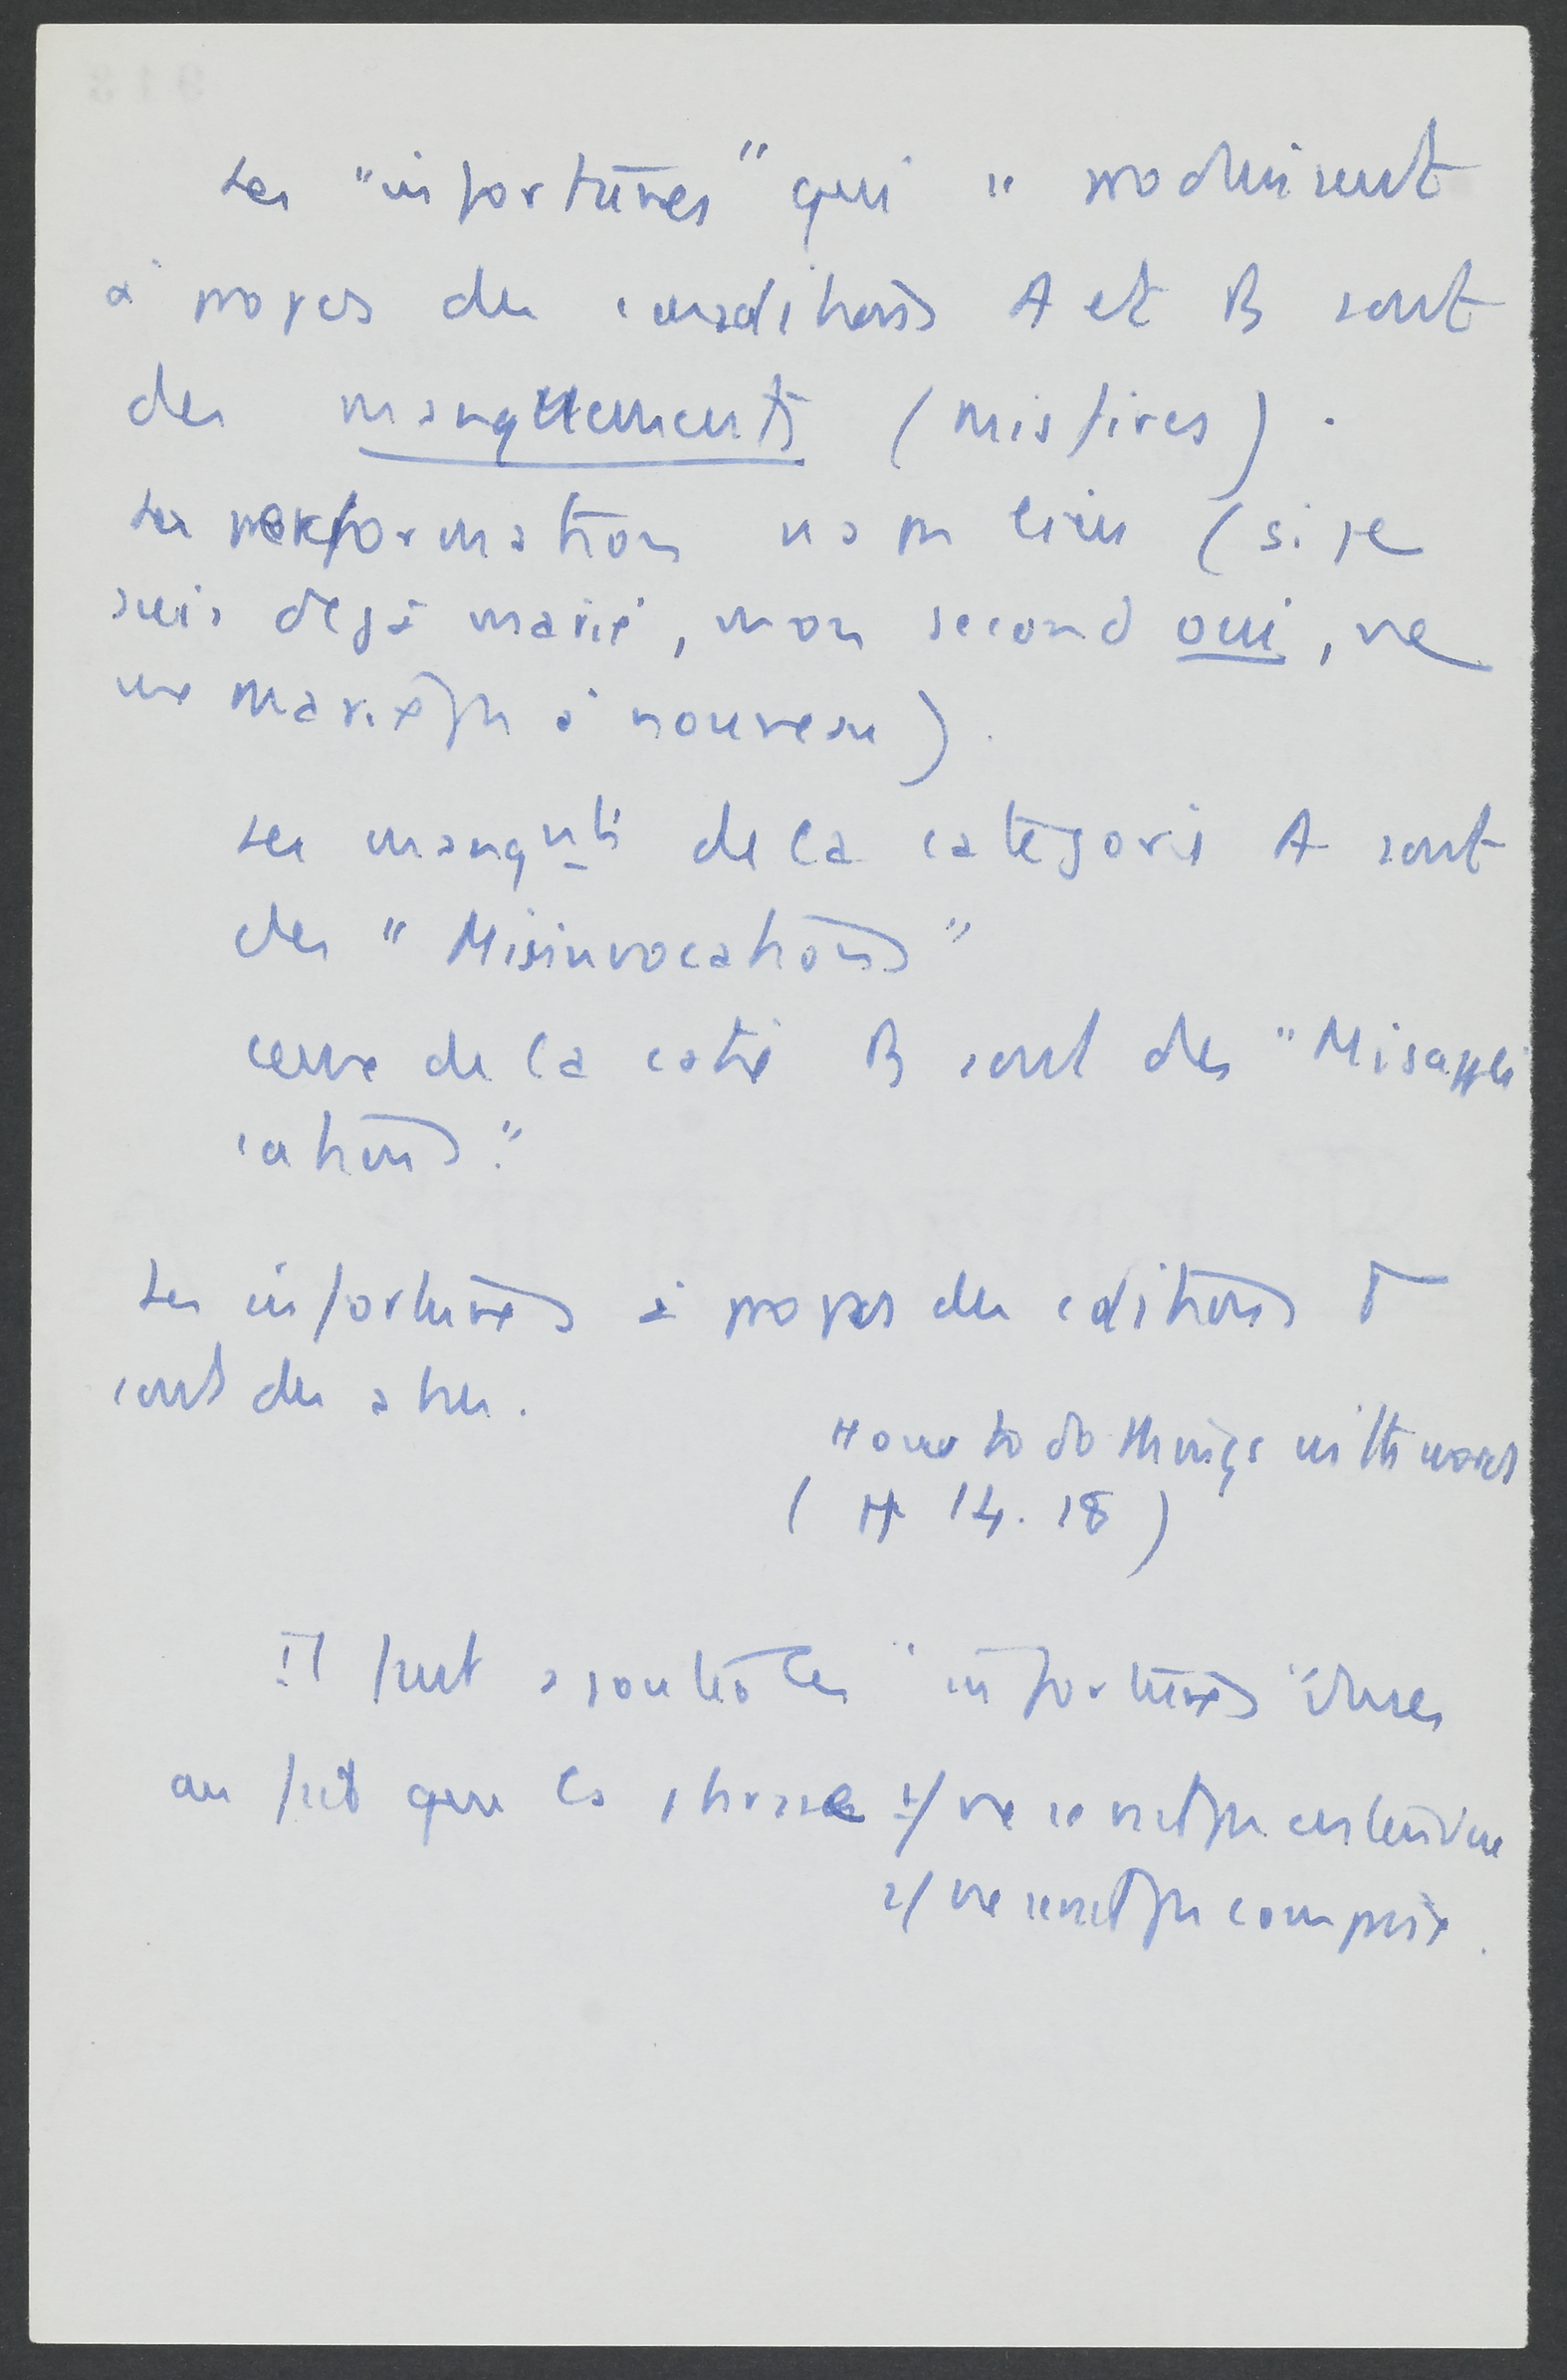 Les "infortunes" qui se produisent
à propos des conditions A et B sont
des manquements (misfires).
La performation n'a pas lieu (si je
suis déjà marié, mon second oui, ne
me marie pas à nouveau).
Les manqnts de la catégorie A sont
des "Misinvocations"
ceux de la catie B sont des "Misappli
cations."
Les infortunes à propos des cditions Γ
sont des abus.
How to do things with words
(H 14. 18)
Il faut ajouter les "infortunes" dues
au fait que la phrase 1/ ne serait pas entendue
2/ ne serait pas comprise.